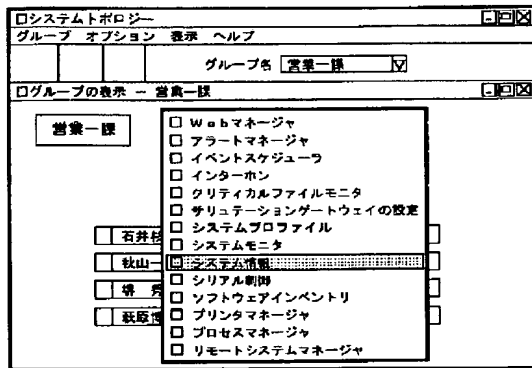 システムトポロジー
グループ オプション 表示 ヘルプ
グループ名 営業一課
グループの表示 － 営業一課
営業一課
Webマネージャ
アラートマネージャ
イベントスケジューラ
インターホン
クリティカルファイルモニタ
サリュテーションゲートウェイの設定
システムプロファイル
システムモニタ
システム情報
シリアル制御
ソフトウェアインベントリ
プリンタマネージャ
プロセスマネージャ
リモートシステムマネージャ
石井
秋山一
堺
萩原